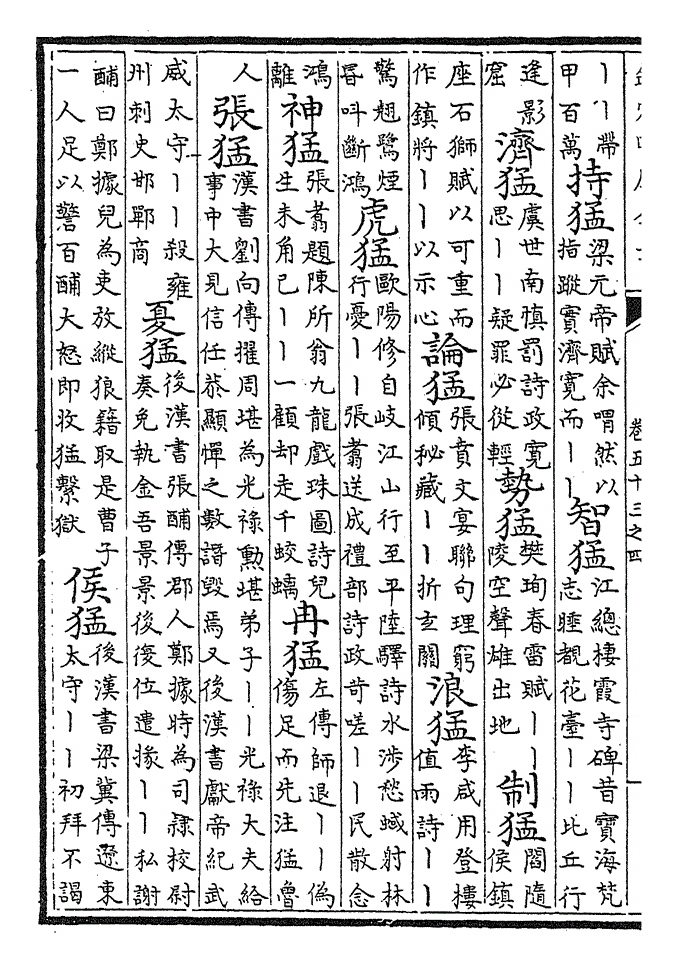 卷五十三之四
丨丨帶
甲百萬
持猛
梁元帝賦余喟然以
指蹤實濟寬而丨丨
智猛
江總棲霞寺碑昔寶海梵
志睡覩花臺丨丨比丘行
逢影
窟
濟猛
虞世南慎罰詩政寬
思丨丨疑罪必從輕
勢猛
樊珣春雷賦丨丨
陵空聲雄出地
制猛
閻隨
侯鎮
座石獅賦以可重而
作鎮將丨丨以示心
論猛
張賁文宴聯句理窮
傾秘藏丨丨折玄關
浪猛
李咸用登樓
值雨詩丨丨
驚翹鷺煙
昏叫斷鴻
虎猛
歐陽修自岐江山行至平陸驛詩水涉愁蜮射林
行憂丨丨張翥送成禮部詩政苛嗟丨丨民散念
鴻
離
神猛
張翥題陳所翁九龍戲珠圖詩兒
生未角已丨丨一顧却走千蛟螭
冉猛
左傳師退丨丨偽
傷足而先注猛魯
人
張猛
漢書劉向傳擢周堪為光祿勲堪弟子丨丨光祿大夫給
事中大見信任恭顯憚之數譖毀焉又後漢書獻帝紀武
威太守丨丨殺雍
州刺史邯鄲商
夏猛
後漢書張酺傳郡人鄭據時為司隸校尉
奏免執金吾景景後復位遣掾丨丨私謝
酺曰鄭據兒為吏放縱狼籍取是曹子
一人足以警百酺大怒即收猛繫獄
侯猛
後漢書梁冀傳遼東
太守丨丨初拜不謁